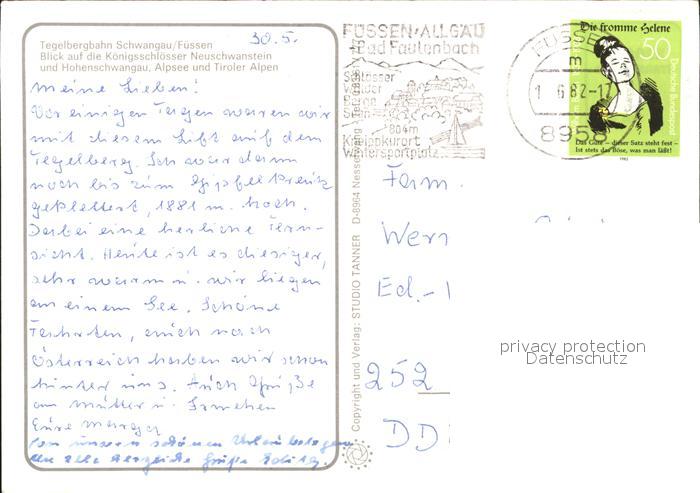 30.5.
Tegelbergbahn Schwangau/Füssen
Blick auf die Königsschlösser Neuschwanstein
und Hohenschwangau, Alpsee und Tiroler Alpen
Meine Lieben!
Vor einigen Tagen waren wir
mit diesem Lift auf dem
Tegelberg. Ich war dann
noch bis zum Gipfelkreuz
geklettert, 1881 m. hoch.
Dabei eine herrliche Fern-
sicht. Heute ist es diesiger,
sehr warm u. wir liegen
an einem See. Schöne
Fahrten, auch nach
Österreich haben wir schon
hinter uns. Auch Grüße
an Mutter u.
Eure
Von unseren schönen Urlaubstagen
an alle herzliche Grüße
Copyright und Verlag: STUDIO TANNER D-8964 Nesselwang
FÜSSEN·ALLGÄU
Bad Faulenbach
Schlösser
Wälder
Berge
Seen
804 m
Kneippkurort
Wintersportplatz
FÜSSEN
m
1.6.82-17
8958
Die fromme Helene
50
Deutsche Bundespost
Das Gute – dieser Satz steht fest –
Ist stets das Böse, was man läßt!
1982
Fam.
Wern
Ed.-
252
DD
privacy protection
Datenschutz